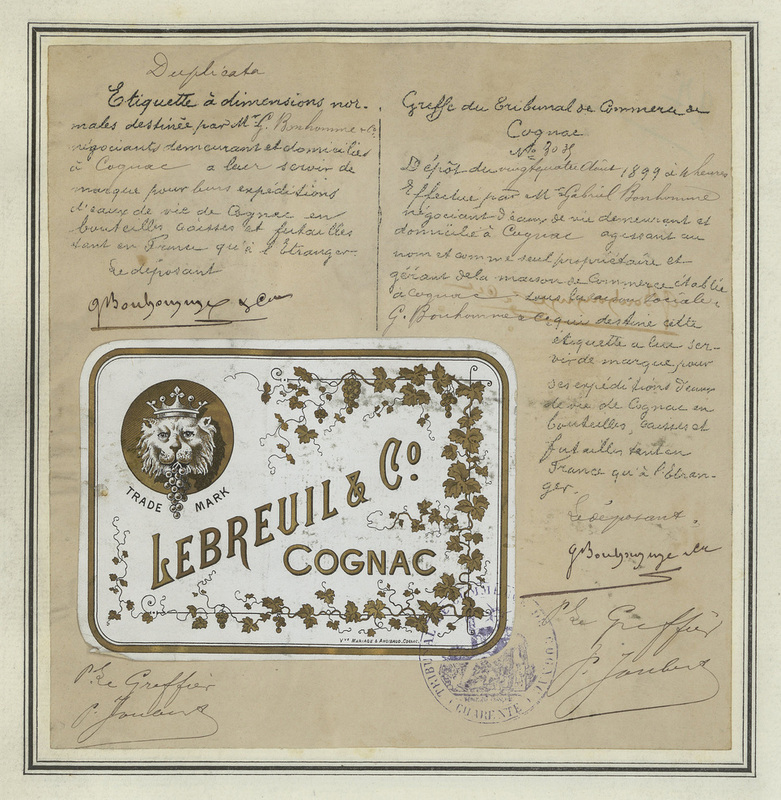 Duplicata
Etiquette à dimensions nor-
males destinée par Mr G. Bonhomme & Co
négociants demeurant et domiciliés
à Cognac a leur servir de
marque pour leurs expéditions
d'eaux de vie de Cognac en
bouteilles, caisses et futailles
tant en France qu'à l'Etranger.
Le déposant
G Bonhomme & Cie
Greffe du Tribunal de Commerce de
Cognac
Dépôt du vingt quatre Août 1899 à 4 heures
Effectué par Mr Gabriel Bonhomme
négociant d'eaux de vie demeurant et
domicilié à Cognac agissant au
nom et comme seul propriétaire et
gérant de la maison de Commerce établie
à Cognac sous la raison sociale
G. Bonhomme & Cie qui destine cette
étiquette a leur ser-
vir de marque pour
ses expéditions d'eaux
de vie de Cognac en
bouteilles, caisses et
futailles tant en
France qu'à l'étran-
ger
Le déposant.
G Bonhomme & Cie
TRADE MARK
LEBREUIL & Co
COGNAC
Vve MARIAGE & ANCIBAUD, COGNAC.
P. Le Greffier
P. Joubert
P. Le Greffier
P. Joubert
TRIBUNAL COMMERCE DE COGNAC
CHARENTE